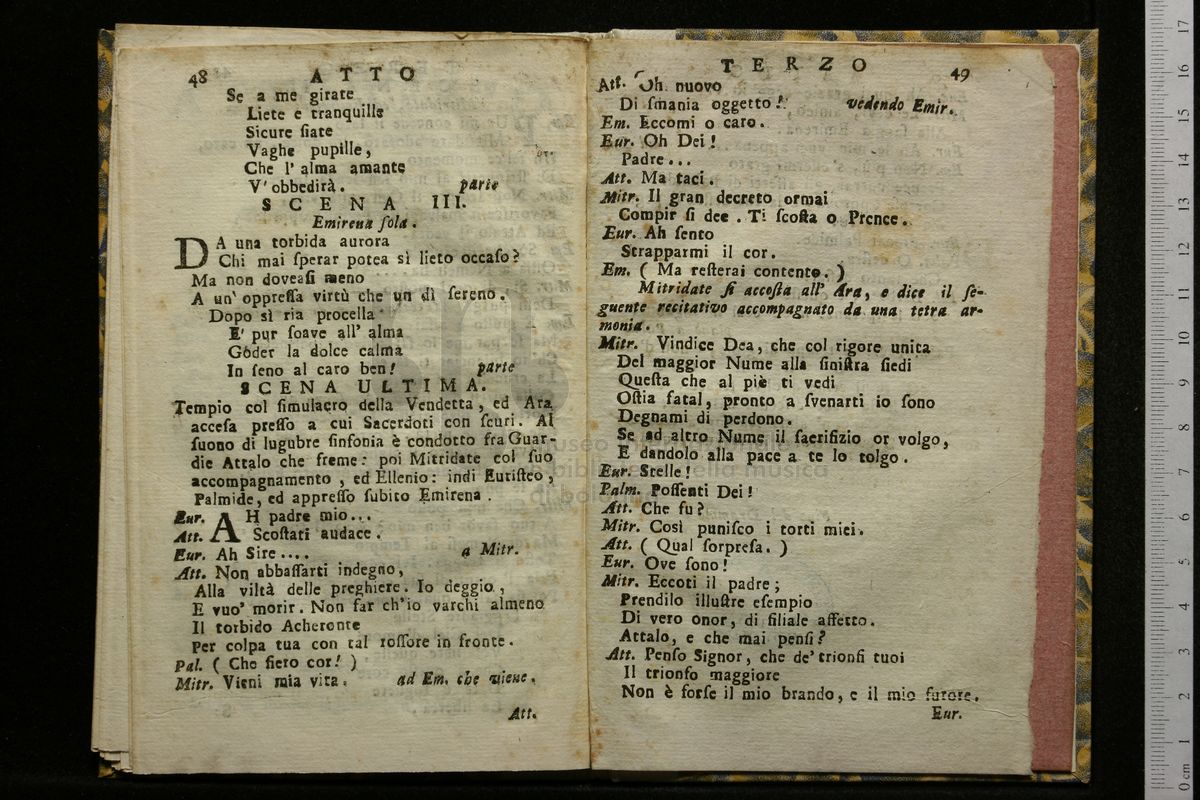 48 ATTO
Se a me girate
Liete e tranquille
Sicure ſiate
Vaghe pupille,
Che l' alma amante
V' obbedirà. parte
SCENA III.
Emirena ſola.
DA una torbida aurora
Chi mai ſperar potea sì lieto occaſo?
Ma non doveaſi meno
A un' oppreſſa virtù che un dì ſereno.
Dopo sì ria procella
E' pur ſoave all' alma
Goder la dolce calma
In ſeno al caro ben! parte
SCENA ULTIMA.
Tempio col ſimulacro della Vendetta, ed Ara
acceſa preſſo a cui Sacerdoti con ſcuri. Al
ſuono di lugubre ſinfonia è condotto fra Guar-
die Attalo che freme: poi Mitridate col ſuo
accompagnamento, ed Ellenio: indi Euriſteo,
Palmide, ed appreſſo ſubito Emirena.
Eur. AH padre mio...
Att. Scoſtati audace.
Eur. Ah Sire.... a Mitr.
Att. Non abbaſſarti indegno,
Alla viltà delle preghiere. Io deggio,
E vuo' morir. Non far ch'io varchi almeno
Il torbido Acheronte
Per colpa tua con tal roſſore in fronte.
Pal. ( Che fiero cor! )
Mitr. Vieni mia vita. ad Em. che viene.
Att.
TERZO 49
Att. Oh nuovo
Di ſmania oggetto! vedendo Emir.
Em. Eccomi o caro.
Eur. Oh Dei!
Padre...
Att. Ma taci.
Mitr. Il gran decreto ormai
Compir ſi dee. Ti ſcoſta o Prence.
Eur. Ah ſento
Strapparmi il cor.
Em. ( Ma reſterai contento. )
Mitridate ſi accoſta all' Ara, e dice il ſe-
guente recitativo accompagnato da una tetra ar-
monia.
Mitr. Vindice Dea, che col rigore unita
Del maggior Nume alla ſiniſtra ſiedi
Queſta che al piè ti vedi
Oſtia fatal, pronto a svenarti io ſono
Degnami di perdono.
Se ad altro Nume il ſacrifizio or volgo,
E dandolo alla pace a te lo tolgo.
Eur. Stelle!
Palm. Poſſenti Dei!
Att. Che fu?
Mitr. Così puniſco i torti miei.
Att. ( Qual ſorpreſa. )
Eur. Ove ſono!
Mitr. Eccoti il padre;
Prendilo illuſtre eſempio
Di vero onor, di filiale affetto.
Attalo, e che mai penſi?
Att. Penſo Signor, che de' trionfi tuoi
Il trionfo maggiore
Non è forſe il mio brando, e il mio furore.
Eur.